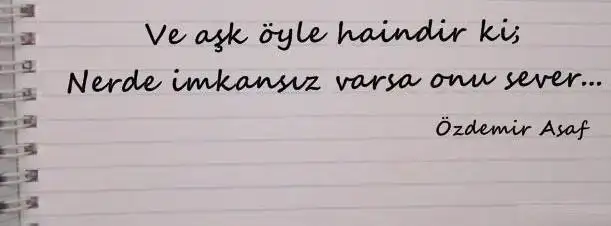 Ve aşk öyle haindir ki;
Nerde imkansız varsa onu sever...
Özdemir Asaf